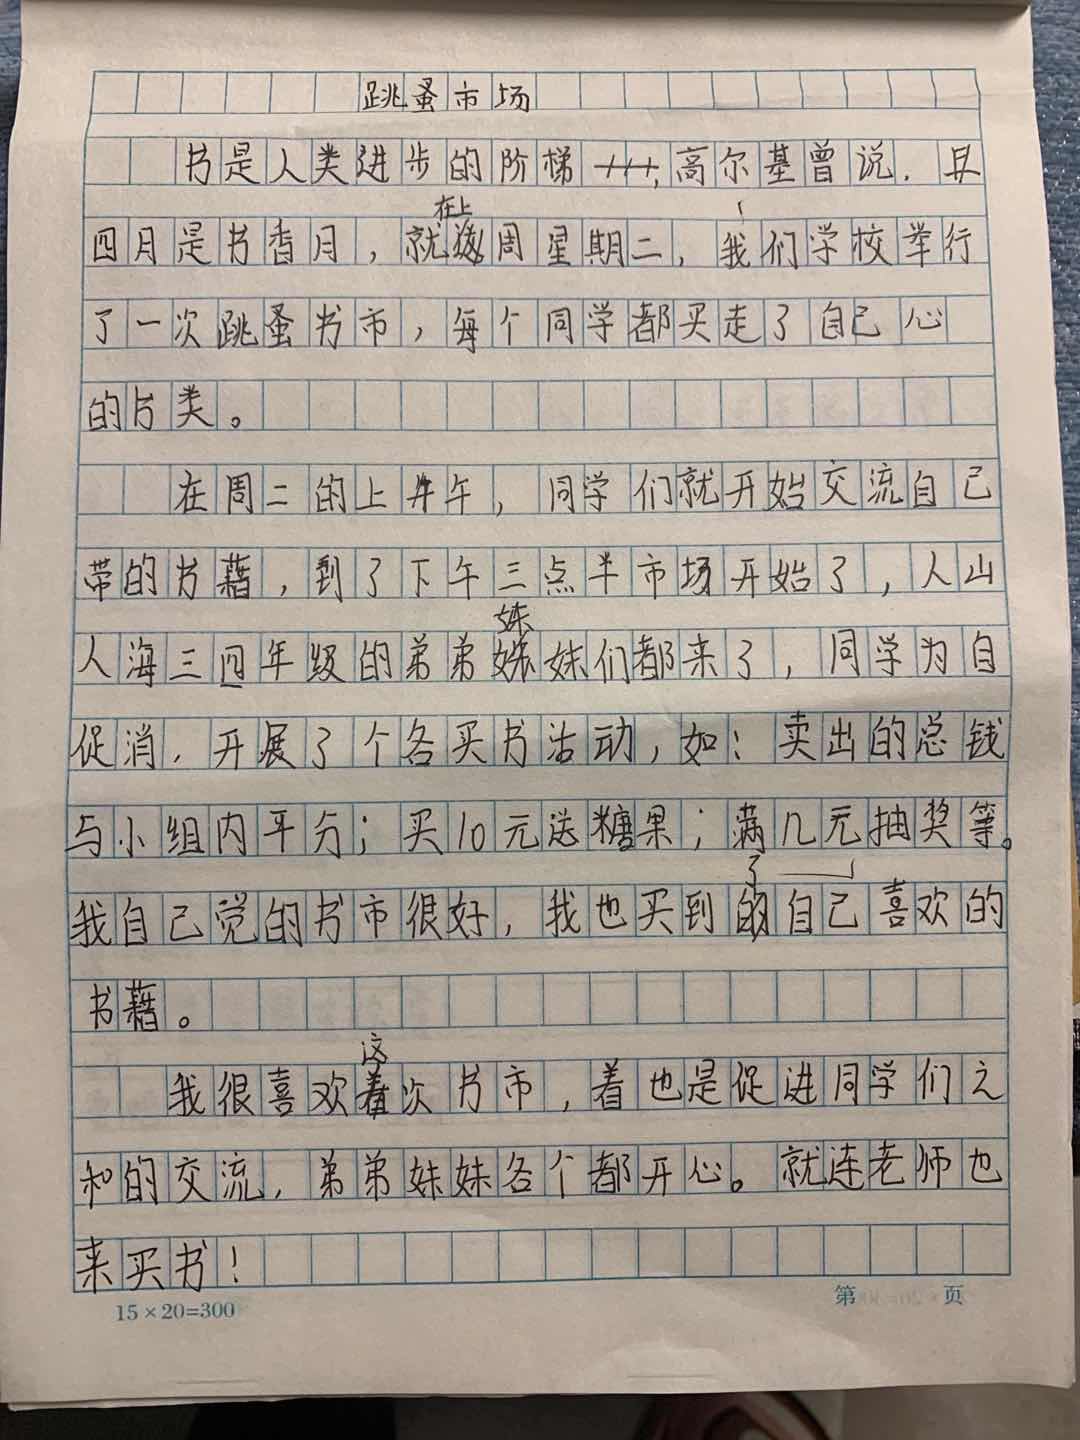 跳蚤市场
书是人类进步的阶梯,高尔基曾说.且
四月是书香月,就在上周星期二,我们学校举行
了一次跳蚤书市,每个同学都买走了自己心
的书类。
在周二的上午,同学们就开始交流自己
带的书藉,到了下午三点半市场开始了,人山
人海三四年级的弟弟妹妹们都来了,同学为自
促消.开展了个各买书活动,如:卖出的总钱
与小组内平分;买10元送糖果;满几元抽奖等。
我自己觉的书市很好,我也买到了自己喜欢的
书藉。
我很喜欢这次书市,着也是促进同学们之
和的交流,弟弟妹妹各个都开心。就连老师也
来买书!
15×20=300
第 页